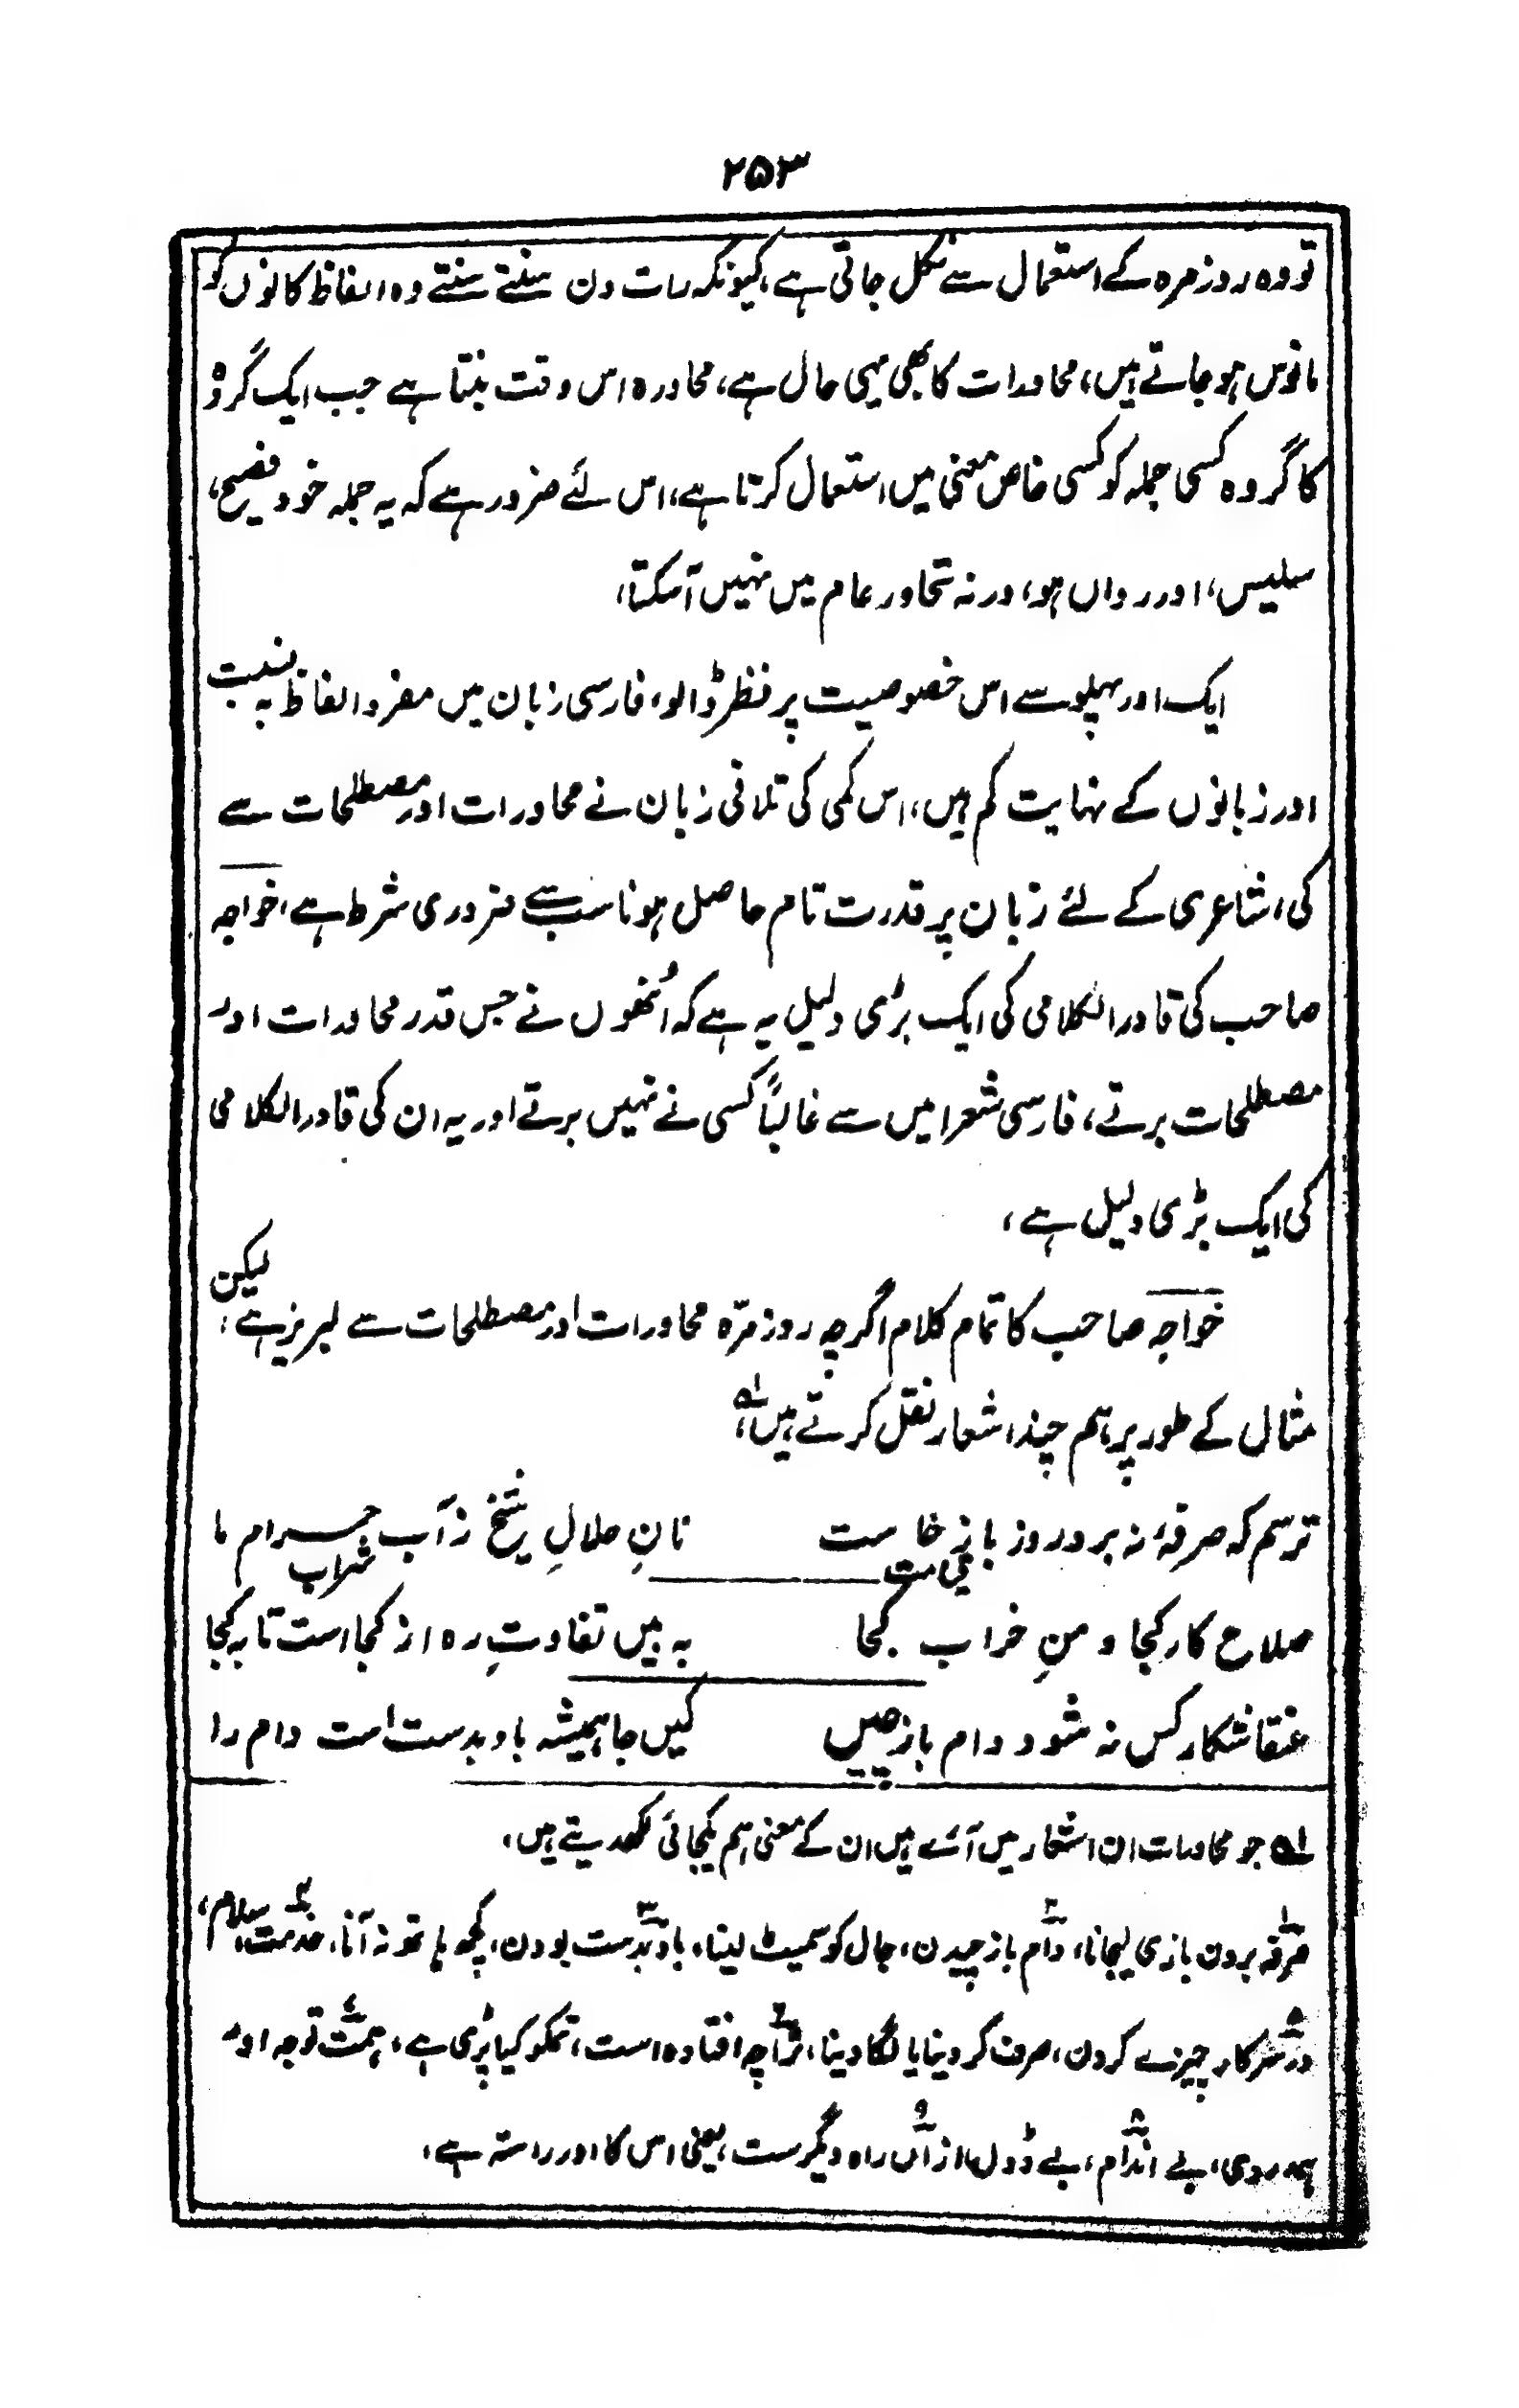 ۲۵۳
تو وہ روزمرہ کے استعمال سے نکل جاتی ہے، کیونکہ رات دن سنتے سنتے وہ الفاظ کانوں کو
مانوس ہو جاتے ہیں، محاورات کا بھی یہی حال ہے، محاورہ اس وقت بنتا ہے جب ایک گروہ
کا گروہ کسی جملہ کو کسی خاص معنی میں استعمال کرتا ہے، اس لئے ضرور ہے کہ یہ جملہ خود فصیح،
سلیس، اور رواں ہو، ورنہ تحاور عام میں نہیں آسکتا،
ایک اور پہلو سے اس خصوصیت پر نظر ڈالو، فارسی زبان میں مفرد الفاظ بہ نسبت
اور زبانوں کے نہایت کم ہیں، اس کمی کی تلافی زبان نے محاورات اور مصطلحات سے
کی، شاعری کے لئے زبان پر قدرت تام حاصل ہونا سب سے ضروری شرط ہے، خواجہ
صاحب کی قادر الکلامی کی ایک بڑی دلیل یہ ہے کہ اُنھوں نے جس قدر محاورات اور
مصطلحات برتے، فارسی شعرا میں سے غالباً کسی نے نہیں برتے اور یہ ان کی قادر الکلامی
کی ایک بڑی دلیل ہے،
خواجہ صاحب کا تمام کلام اگرچہ روزمرّہ محاورات اور مصطلحات سے لبریز ہے، لیکن
مثال کے طور پر ہم چند اشعار نقل کرتے ہیں،۱؎
ترسم کہ صرفۂ نہ برد روز باز خاست نانِ حلالِ شیخ ز آب حرام ما
قیامت شراب
صلاح کار کجا و منِ خراب کجا بہ بیں تفاوتِ رہ از کجاست تا بہ کجا
عنقا شکار کس نہ شود دام باز چیں کیں جا ہمیشہ باد بدست است دام را
۱؎ جو محاورات ان اشعار میں آئے ہیں ان کے معنی ہم یکجائی لکھدیتے ہیں،
۱؎ صرفہ بردن بازی لیجانا، ۲؎ دام باز چیدن، جال کو سمیٹ لینا، ۳؎ باد بدست بودن، کچھ ہاتھ نہ آنا، ۴؎ خدمت، سلام،
۵؎ در سر کار چیزے کردن، صرف کر دینا یا لگا دینا، ۶؎ ترا چہ افتادہ است، تمکو کیا پڑی ہے، ۷؎ ہمت توجہ اور
ہمدردی، ۸؎ بے اندام، بے ڈول، ۹؎ از آں راہ دیگرست، یعنی اس کا اور راستہ ہے،